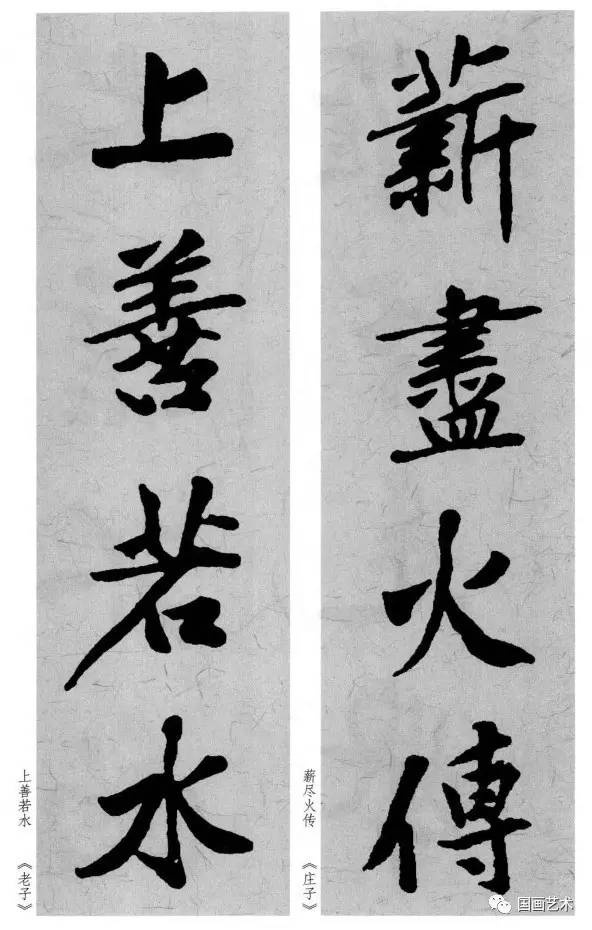 薪盡火傳
薪尽火传 《庄子》
上善若水
上善若水 《老子》
国画艺术